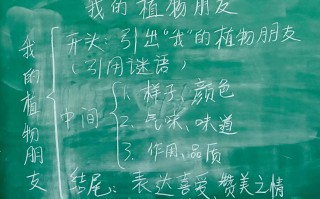 我的植物朋友
我的植物朋友
开头：引出“我”的植物朋友
（引用谜语）
中间
1. 样子、颜色
2. 气味、味道
3. 作用、品质
结尾：表达喜爱、赞美之情